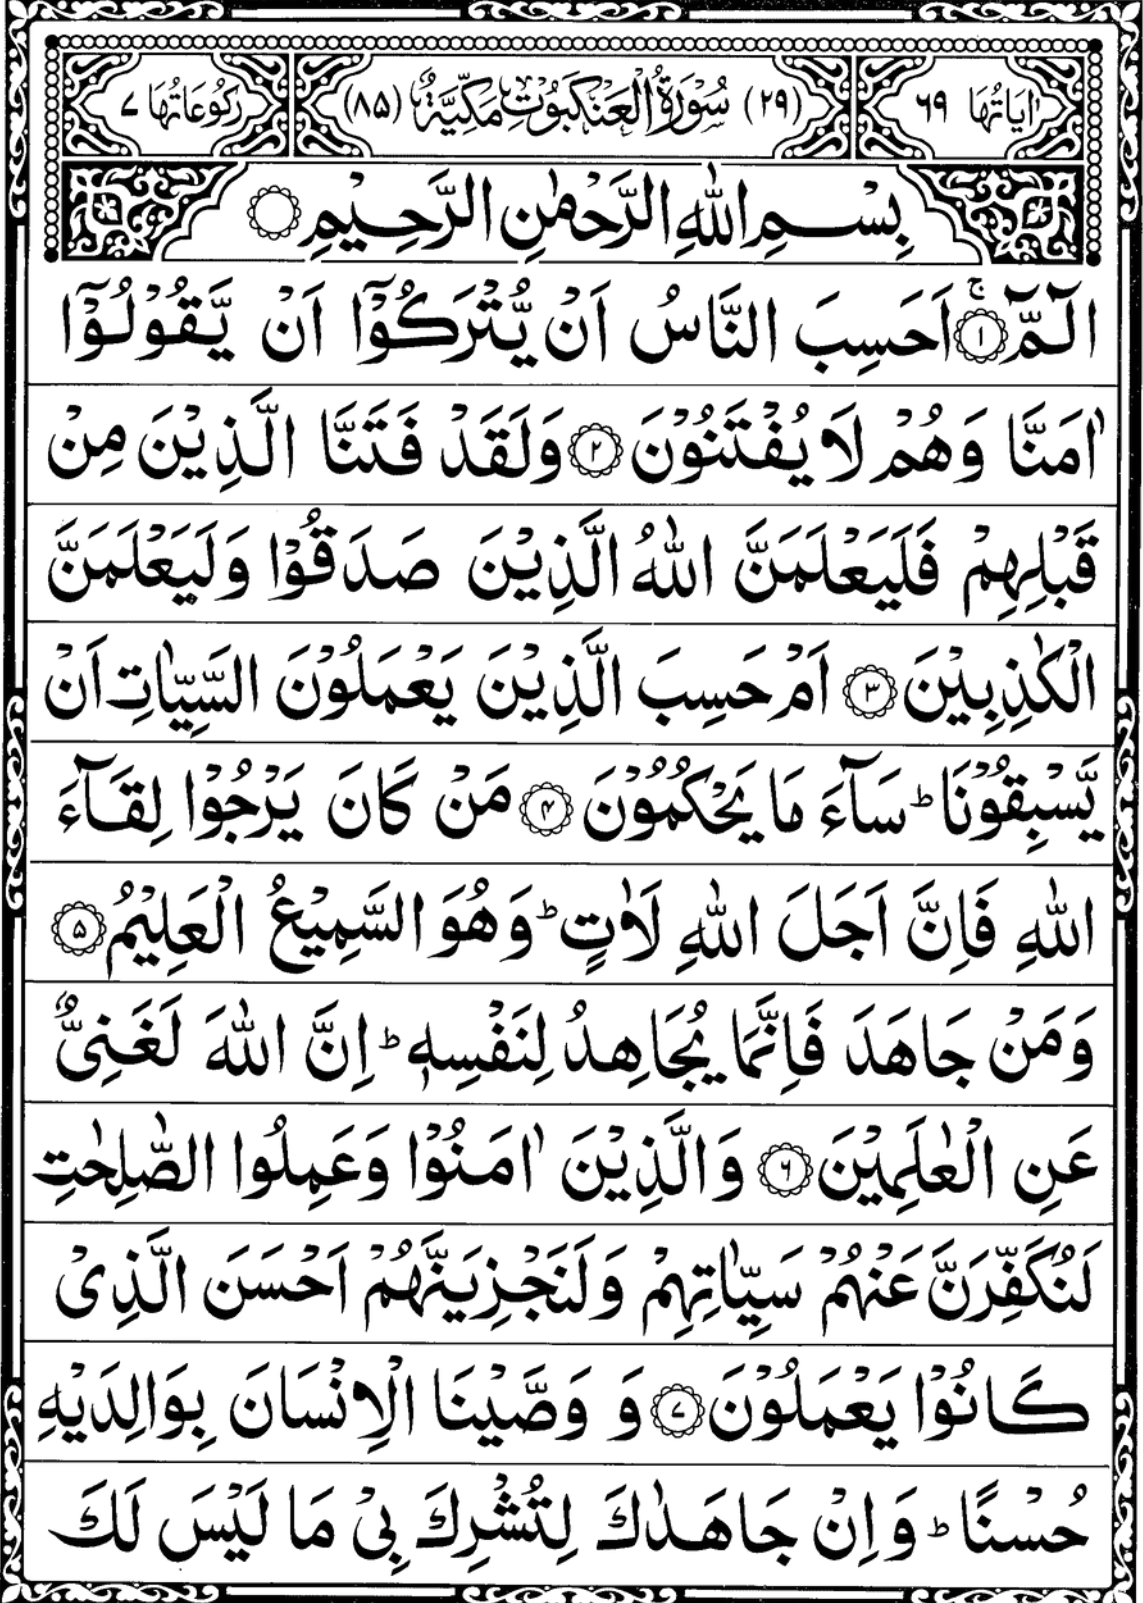 اٰيَاتُهَا ٦٩ (٢٩) سُوْرَةُ الْعَنْكَبُوْتِ مَكِّيَّةٌ (٨٥) رُكُوْعَاتُهَا ٧
بِسْمِ اللّٰهِ الرَّحْمٰنِ الرَّحِيْمِ
الٓمّٓ ۚ﴿۱﴾ اَحَسِبَ النَّاسُ اَنْ يُّتْرَكُوْۤا اَنْ يَّقُوْلُوْۤا
اٰمَنَّا وَهُمْ لَا يُفْتَنُوْنَ ﴿۲﴾ وَلَقَدْ فَتَنَّا الَّذِيْنَ مِنْ
قَبْلِهِمْ فَلَيَعْلَمَنَّ اللّٰهُ الَّذِيْنَ صَدَقُوْا وَلَيَعْلَمَنَّ
الْكٰذِبِيْنَ ﴿۳﴾ اَمْ حَسِبَ الَّذِيْنَ يَعْمَلُوْنَ السَّيِّاٰتِ اَنْ
يَّسْبِقُوْنَا ؕ سَآءَ مَا يَحْكُمُوْنَ ﴿۴﴾ مَنْ كَانَ يَرْجُوْا لِقَآءَ
اللّٰهِ فَاِنَّ اَجَلَ اللّٰهِ لَاٰتٍ ؕ وَهُوَ السَّمِيْعُ الْعَلِيْمُ ﴿۵﴾
وَمَنْ جَاهَدَ فَاِنَّمَا يُجَاهِدُ لِنَفْسِهٖ ؕ اِنَّ اللّٰهَ لَغَنِىٌّ
عَنِ الْعٰلَمِيْنَ ﴿۶﴾ وَالَّذِيْنَ اٰمَنُوْا وَعَمِلُوا الصّٰلِحٰتِ
لَنُكَفِّرَنَّ عَنْهُمْ سَيِّاٰتِهِمْ وَلَنَجْزِيَنَّهُمْ اَحْسَنَ الَّذِىْ
كَانُوْا يَعْمَلُوْنَ ﴿۷﴾ وَ وَصَّيْنَا الْاِنْسَانَ بِوَالِدَيْهِ
حُسْنًا ؕ وَاِنْ جَاهَدٰكَ لِتُشْرِكَ بِىْ مَا لَيْسَ لَكَ